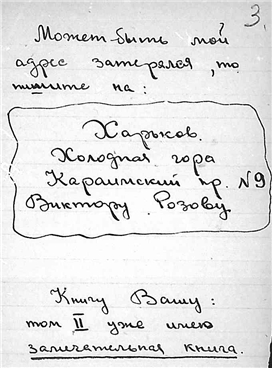 3.
Может быть мой
адрес затерялся, то
пишите на:
Харьков.
Холодная гора
Караимский пр. №9
Виктору Розову.
Книгу Вашу:
том II уже имею
замечательная книга.